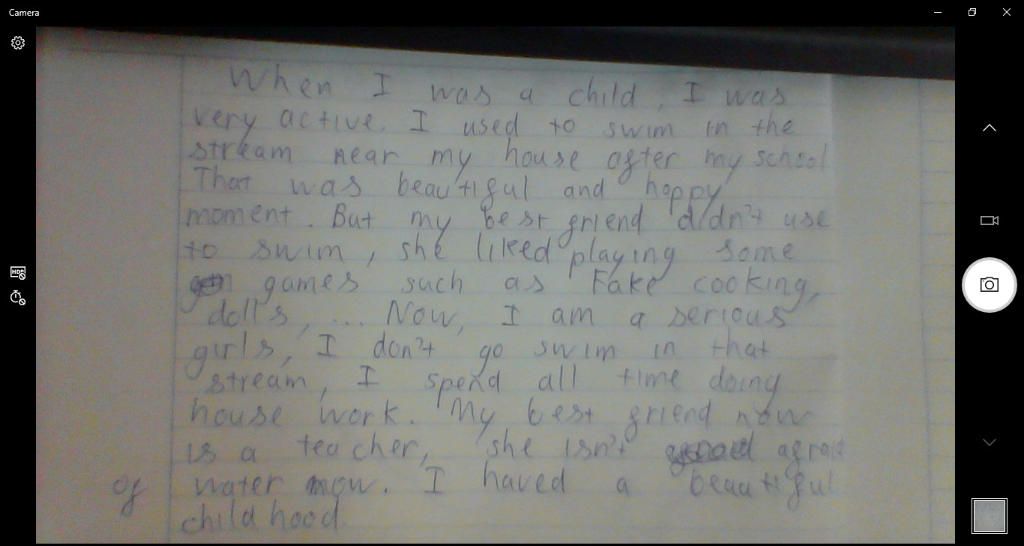 Camera
When I was a child, I was
very active. I used to swim in the
stream near my house after my school
That was beautiful and happy
moment. But my best friend didn't use
to swim, she liked playing some
games such as Fake cooking,
dolls, ... Now, I am a serious
girls, I don't go swim in that
stream, I spend all time doing
house work. My best friend now
is a teacher, she isn't afraid
of water now. I haved a beautiful
childhood.